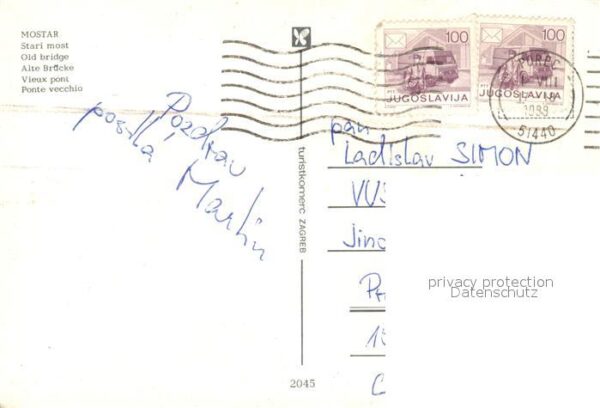 MOSTAR
Stari most
Old bridge
Alte Brücke
Vieux pont
Ponte vecchio
Pozdrav
posílá
Martin
turistkomerc ZAGREB
2045
100
JUGOSLAVIJA
100
JUGOSLAVIJA
POREČ
51440
pan
Ladislav SIMON
VÚ
Jin
privacy protection
Datenschutz